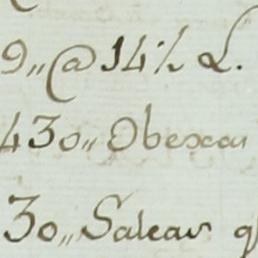 9,, @ 14 1/2 L.
430,, Obexas
30,, Salcar q